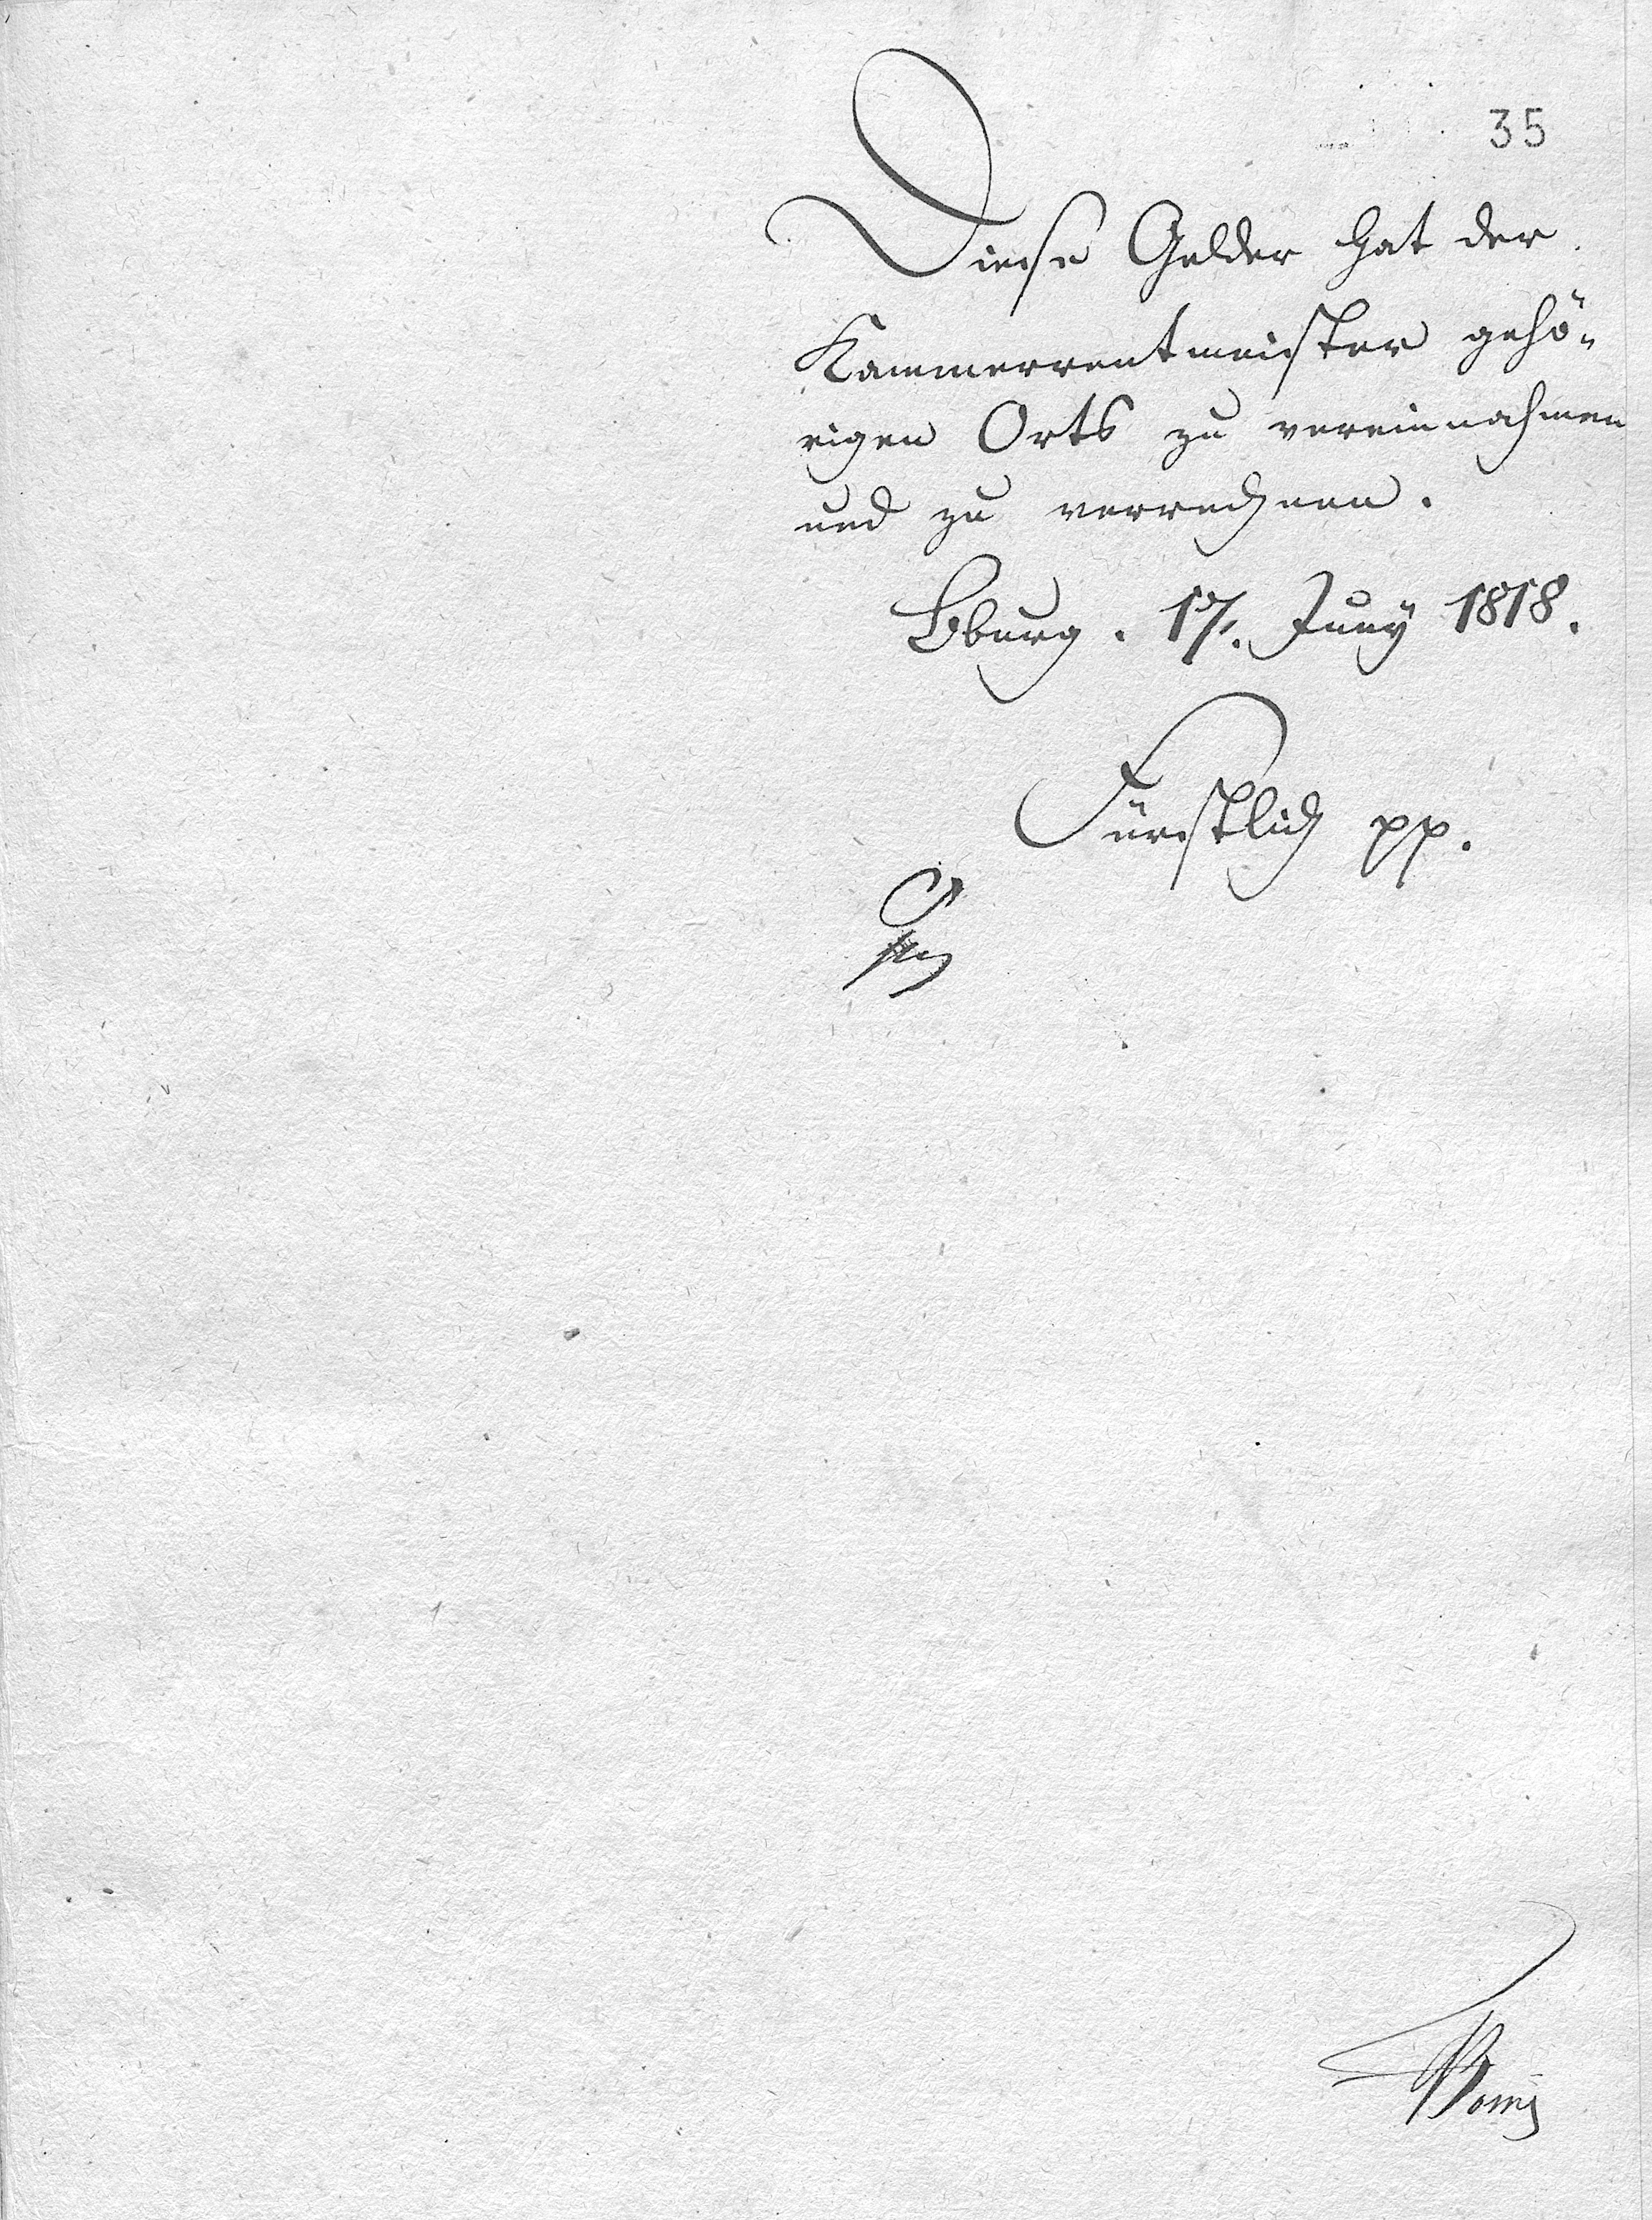 35
Diese Gelder hat der
Kammerrentmeister gehö-
rigen Orts zu vereinnahmen
und zu verrechnen.
Bburg. 17. Juny 1818.
Fürstlich pp.